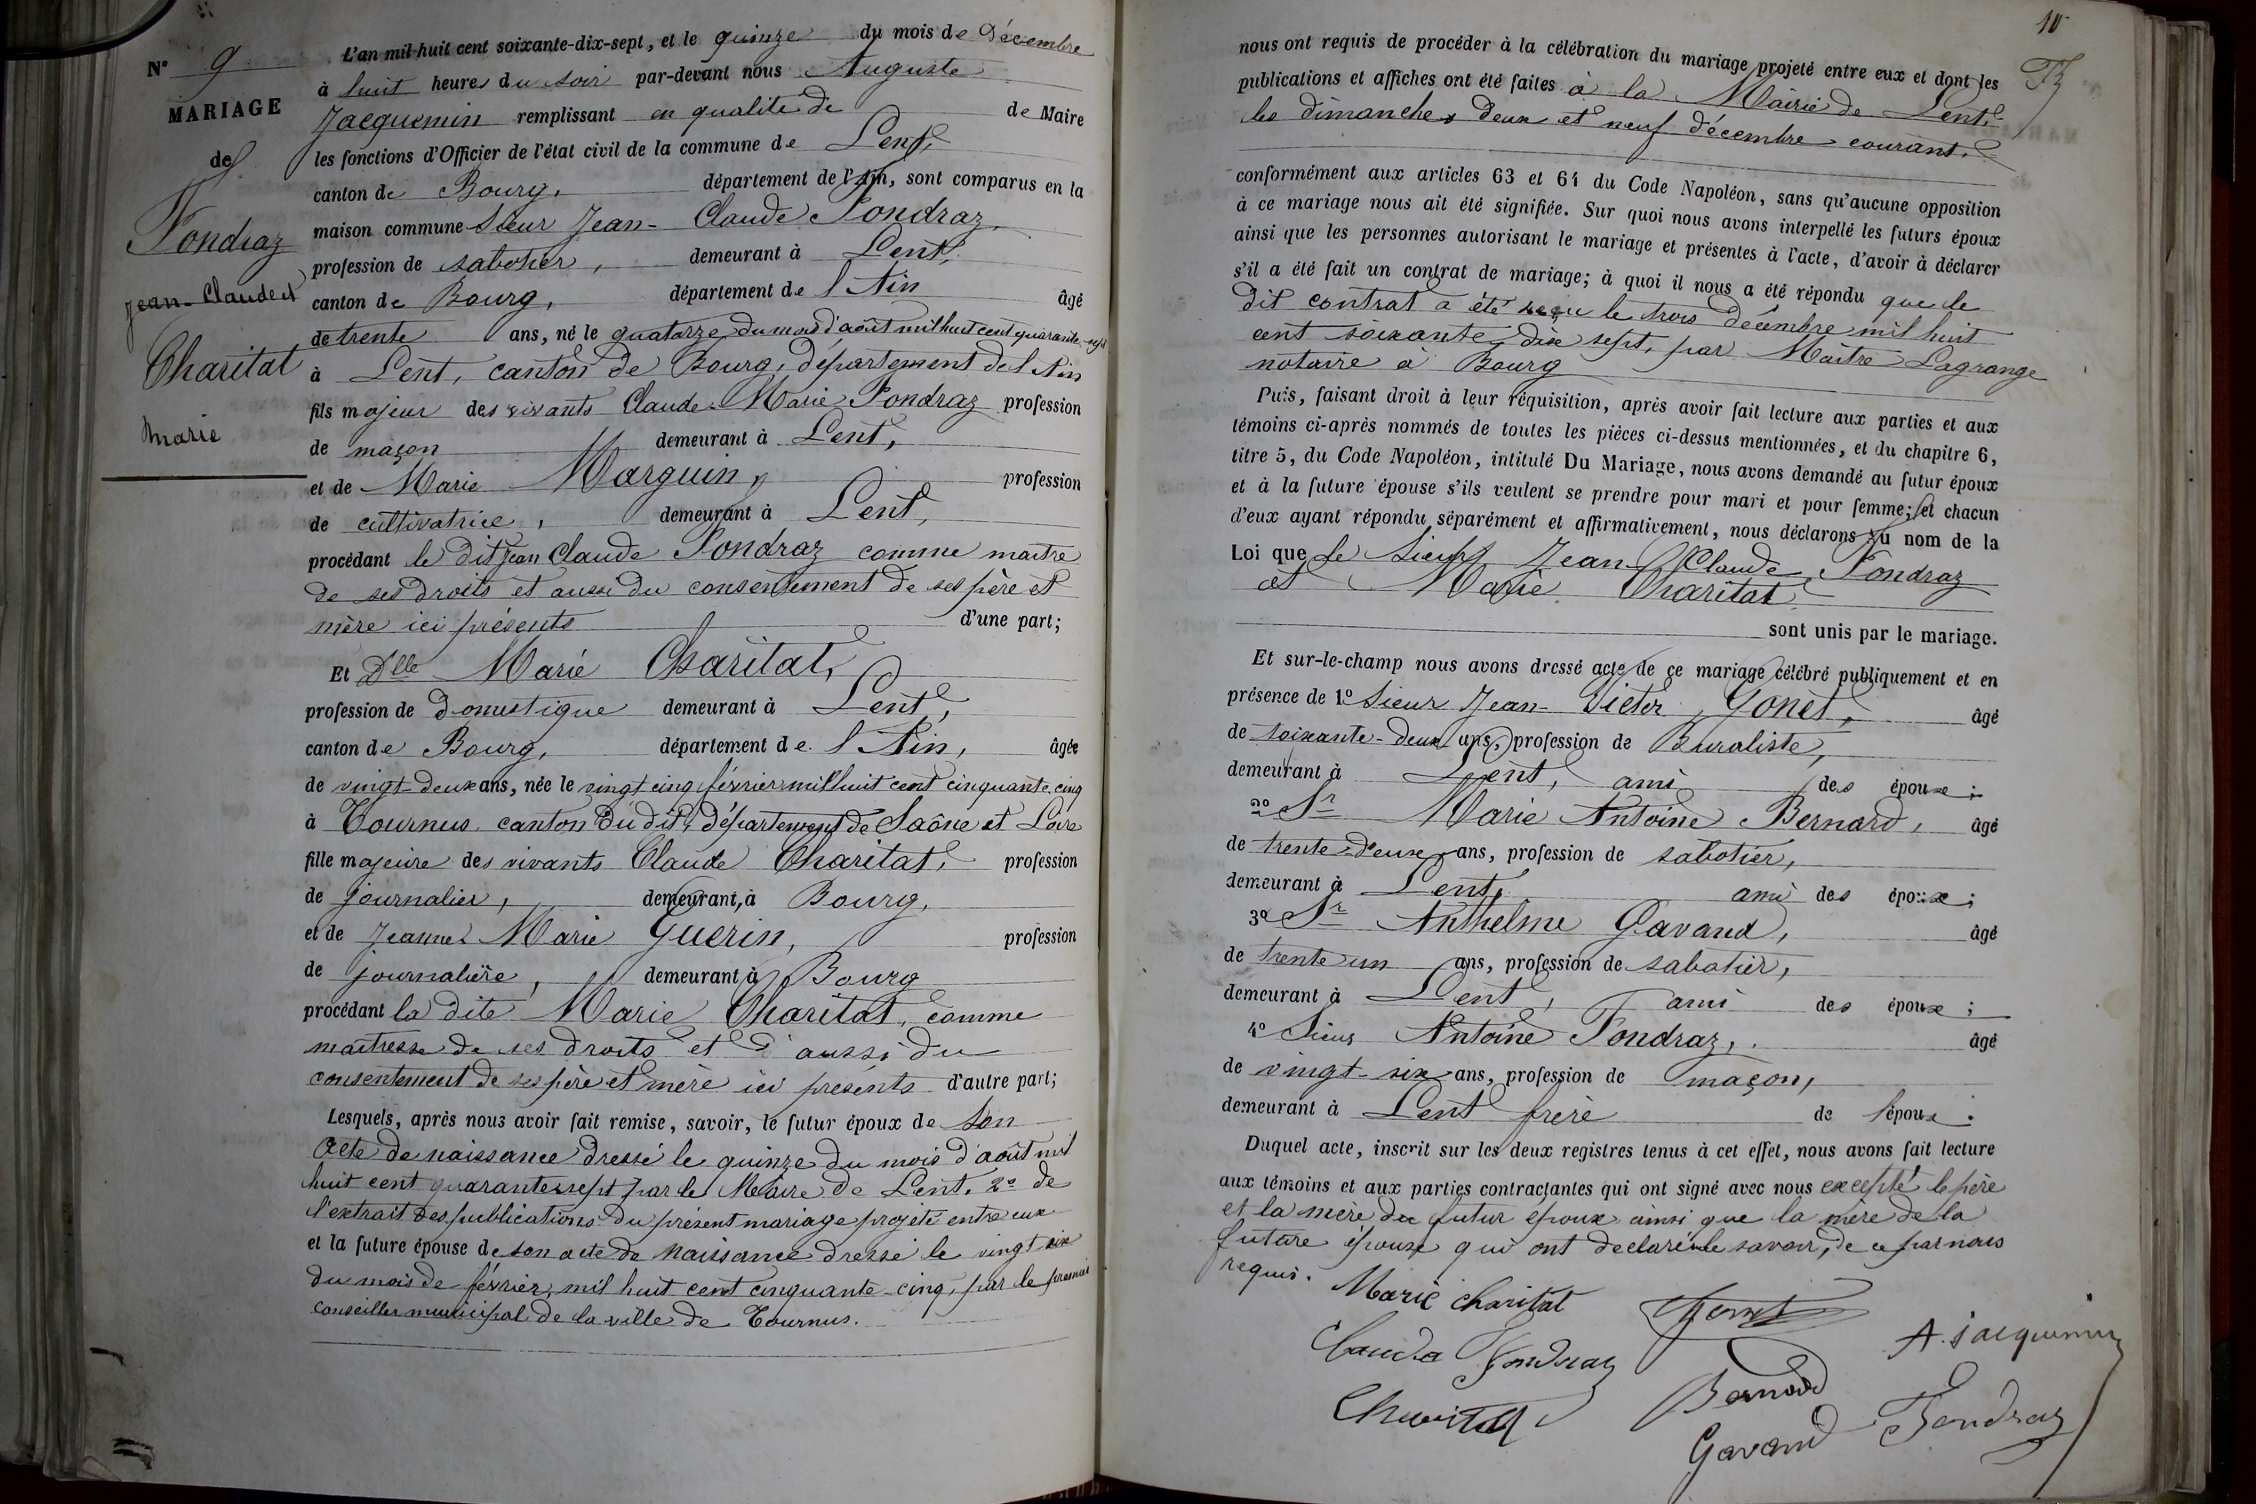 N° 9
MARIAGE
de
Fondraz
Jean-Claude et
Charitat
Marie
L'an mil huit cent soixante-dix-sept, et le quinze du mois de Décembre
à huit heures du soir par-devant nous Auguste
Jacquemin remplissant en qualité de de Maire
les fonctions d'Officier de l'état civil de la commune de Lent,
canton de Bourg, département de l'Ain, sont comparus en la
maison commune Sieur Jean-Claude Fondraz,
profession de sabotier, demeurant à Lent,
canton de Bourg, département de l'Ain âgé
de trente ans, né le quatorze du mois d'août mil huit cent quarante-sept
à Lent, canton de Bourg, département de l'Ain
fils majeur des vivants Claude-Marie Fondraz profession
de maçon demeurant à Lent,
et de Marie Marguin, profession
de cultivatrice, demeurant à Lent,
procédant le dit Jean Claude Fondraz comme maître
de ses droits et aussi du consentement de ses père et
mère ici présents d'une part;
Et Dlle Marie Charitat,
profession de domestique demeurant à Lent,
canton de Bourg, département de l'Ain, âgée
de vingt-deux ans, née le vingt cinq février mil huit cent cinquante cinq
à Tournus canton du dit, département de Saône et Loire
fille majeure des vivants Claude Charitat, profession
de journalier, demeurant à Bourg,
et de Jeanne Marie Guerin, profession
de journalière, demeurant à Bourg
procédant la dite Marie Charitat, comme
maîtresse de ses droits et aussi du
consentement de ses père et mère ici présents d'autre part;
Lesquels, après nous avoir fait remise, savoir, le futur époux de son
acte de naissance dressé le quinze du mois d'août mil
huit cent quarante sept par le Maire de Lent. 2° de
l'extrait des publications du présent mariage projeté entre eux
et la future épouse de son acte de naissance dressé le vingt six
du mois de février mil huit cent cinquante-cinq, par le premier
conseiller municipal de la ville de Tournus.
10
nous ont requis de procéder à la célébration du mariage projeté entre eux et dont les
publications et affiches ont été faites à la Mairie de Lent,
les dimanches deux et neuf décembre courant.
conformément aux articles 63 et 64 du Code Napoléon, sans qu'aucune opposition
à ce mariage nous ait été signifiée. Sur quoi nous avons interpellé les futurs époux
ainsi que les personnes autorisant le mariage et présentes à l'acte, d'avoir à déclarer
s'il a été fait un contrat de mariage; à quoi il nous a été répondu que le
dit contrat a été reçu le trois décembre mil huit
cent soixante dix sept, par Maître Lagrange
notaire à Bourg
Puis, faisant droit à leur réquisition, après avoir fait lecture aux parties et aux
témoins ci-après nommés de toutes les pièces ci-dessus mentionnées, et du chapitre 6,
titre 5, du Code Napoléon, intitulé Du Mariage, nous avons demandé au futur époux
et à la future épouse s'ils veulent se prendre pour mari et pour femme; et chacun
d'eux ayant répondu séparément et affirmativement, nous déclarons au nom de la
Loi que le Sieur Jean Claude Fondraz
et Marie Charitat
sont unis par le mariage.
Et sur-le-champ nous avons dressé acte de ce mariage célébré publiquement et en
présence de 1° Sieur Jean-Victor Gonet, âgé
de soixante-deux ans, profession de Buraliste,
demeurant à Lent, ami des époux;
2° Sr Marie Antoine Bernard, âgé
de trente-deux ans, profession de sabotier,
demeurant à Lent, ami des époux;
3° Sr Anthelme Gavand, âgé
de trente un ans, profession de sabotier,
demeurant à Lent, ami des époux;
4° Sieur Antoine Fondraz, âgé
de vingt-six ans, profession de maçon,
demeurant à Lent frère de l'époux.
Duquel acte, inscrit sur les deux registres tenus à cet effet, nous avons fait lecture
aux témoins et aux parties contractantes qui ont signé avec nous excepté le père
et la mère du futur époux ainsi que la mère de la
future épouse qui ont déclaré ne le savoir, de ce par nous
requis.
Marie Charitat Gonet
A. Jacquemin
Claude Fondraz
Bernard
Charitat
Gavand Fondraz